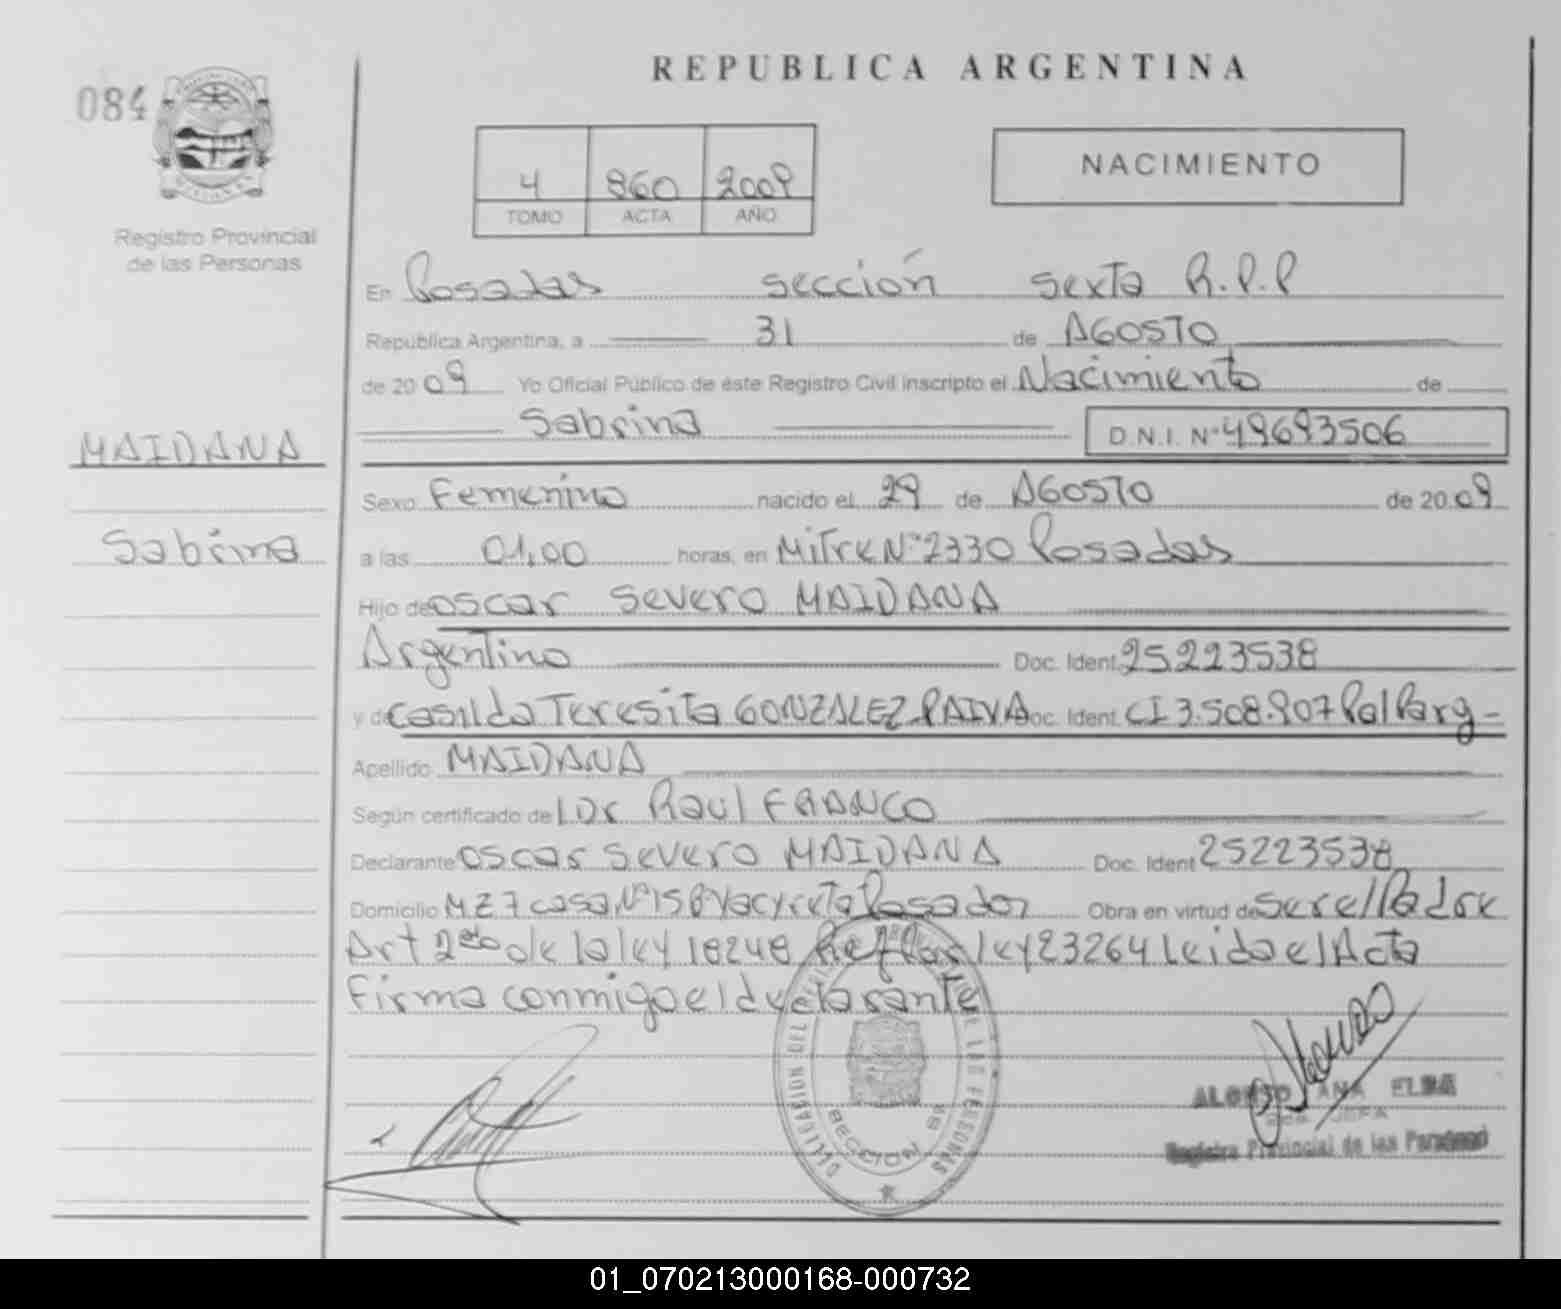 REPUBLICA ARGENTINA
084
Registro Provincial
de las Personas
4 860 2009
TOMO ACTA AÑO
NACIMIENTO
En Posadas sección sexta R.P.P
República Argentina, a 31 de AGOSTO
de 2009 Yo Oficial Público de éste Registro Civil inscripto el Nacimiento de
Sabrina D.N.I. Nº 49693506
MAIDANA
Sabrina
Sexo Femenino nacido el 29 de AGOSTO de 2009
a las 01,00 horas, en Mitre Nº 2330 Posadas
Hijo de oscar severo MAIDANA
Argentino Doc. Ident. 25223538
y de casilda Teresita GONZALEZ PAIVA Doc. Ident. CI 3.508.907 Pol Parg-
Apellido MAIDANA
Según certificado del Dr Raul FRANCO
Declarante oscar severo MAIDANA Doc. Ident. 25223538
Domicilio MZ 7 casa Nº 15 Bº Yacyreta Posadas Obra en virtud de ser el Padre
Art 2do de la ley 18248 Ref Por ley 23264 Leida el Acta
Firma conmigo el declarante
DELEGACION DEL REGISTRO PROVINCIAL DE LAS PERSONAS
SECCION 6ª
ALONSO ANA ELBA
JEFA
Registro Provincial de las Personas
01_070213000168-000732